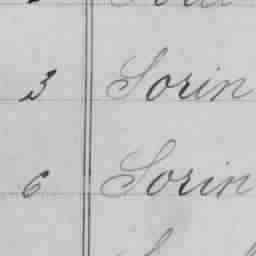 3 Sorin
6 Sorin